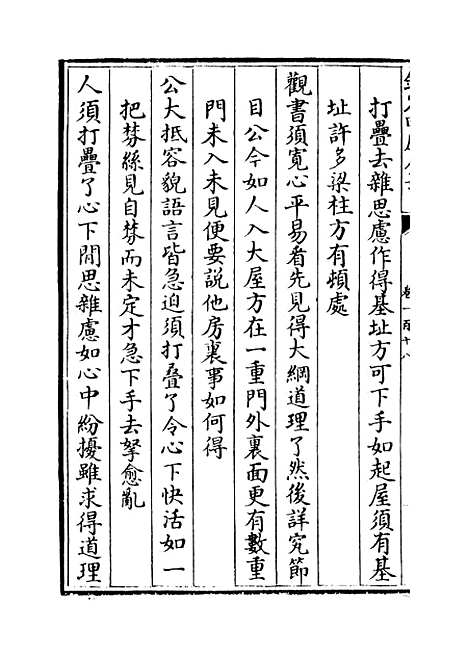 打疊去雜思慮作得基址方可下手如起屋須有基
址許多梁柱方有頓處
觀書須寬心平易看先見得大綱道理了然後詳究節
目公今如人入大屋方在一重門外裏面更有數重
門未入未見便要說他房裏事如何得
公大抵容貌語言皆急迫須打疊了令心下快活如一
把棼絲見自棼而未定才急下手去拏愈亂
人須打疊了心下閒思雜慮如心中紛擾雖求得道理
卷一百十八